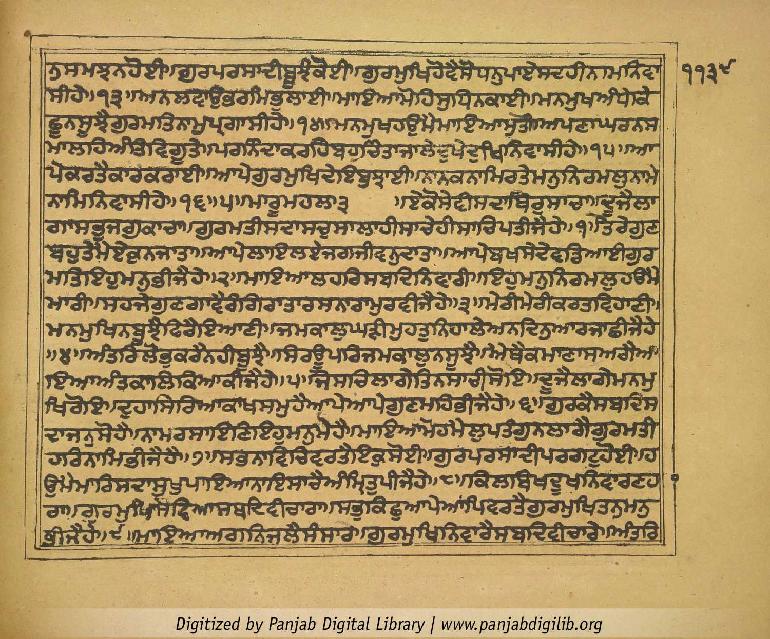 ਨੁਸਮਝਨਹੋਈ॥ਗੁਰਪਰਸਾਦੀਬੂਝੈਕੋਈ॥ਗੁਰਮੁਖਿਹੋਵੈਸੋਧਨੁਪਾਏਸਦਹੀਨਾਮਨਿਵਾ ੧੧੩੯
ਸੀਹੇ॥੧੩॥ਅਨਲਵਾਉਭਰਮਿਭੁਲਾਈ॥ਮਾਇਆਮੋਹਿਸੁਧਿਨਕਾਈ॥ਮਨਮੁਖਅੰਧੇਕਿ
ਛੂਨਸੂਝੈਗੁਰਮਤਿਨਾਮੁਪ੍ਰਗਾਸੀਹੇ॥੧੪॥ਮਨਮੁਖਹਉਮੈਮਾਇਆਸੂਤੇ॥ਅਪਣਾਘਰੁਨਸ
ਮਾਲਹਿਅੰਤਿਵਿਗੂਤੇ॥ਪਰਨਿੰਦਾਕਰਹਿਬਹੁਚਿੰਤਾਜਾਲੈਦੁਖੇਦੁਖਿਨਿਵਾਸੀਹੇ॥੧੫॥ਆ
ਪੇਕਰਤੈਕਾਰਕਰਾਈ॥ਆਪੇਗੁਰਮੁਖਿਦੇਇਬੁਝਾਈ॥ਨਾਨਕਨਾਮਿਰਤੇਮਨੁਨਿਰਮਲੁਨਾਮੇ
ਨਾਮਿਨਿਵਾਸੀਹੇ॥੧੬॥੫॥ਮਾਰੂਮਹਲਾ੩ ॥ਏਕੋਸੇਵੀਸਦਾਥਿਰੁਸਾਚਾ॥ਦੂਜੈਲਾ
ਗਾਸਭੁਜਗੁਕਾਚਾ॥ਗੁਰਮਤੀਸਦਾਸਚੁਸਾਲਾਹੀਸਾਚੇਹੀਸਾਚਿਪਤੀਜੈਹੇ॥੧॥ਤੇਰੇਗੁਣ
ਬਹੁਤੇਮੈਏਕੁਨਜਾਤਾ॥ਆਪੇਲਾਇਲਏਜਗਜੀਵਨੁਦਾਤਾ॥ਆਪੇਬਖਸੇਦੇਵਡਿਆਈਗੁਰ
ਮਤਿਇਹੁਮਨੁਭੀਜੈਹੇ॥੨॥ਮਾਇਆਲਹਰਿਸਬਦਿਨਿਵਾਰੀ॥ਇਹੁਮਨੁਨਿਰਮਲੁਹਉਮੈ
ਮਾਰੀ॥ਸਹਜੇਗੁਣਗਾਵੈਰੰਗਿਰਾਤਾਰਸਨਾਰਾਮੁਰਵੀਜੈਹੇ॥੩॥ਮੇਰੀਮੇਰੀਕਰਤਵਿਹਾਣੀ॥
ਮਨਮੁਖਿਨਬੂਝੈਫਿਰੈਇਆਣੀ॥ਜਮਕਾਲੁਘੜੀਮੁਹਤੁਨਿਹਾਲੇਅਨਦਿਨੁਆਰਜਾਛੀਜੈਹੇ
॥੪॥ਅੰਤਰਿਲੋਭੁਕਰੈਨਹੀਬੂਝੈ॥ਸਿਰਊਪਰਿਜਮਕਾਲੁਨਸੂਝੈ॥ਐਥੈਕਮਾਣਾਸੁਅਗੈਆ
ਇਆਅੰਤਕਾਲੇਕਿਆਕੀਜੈਹੇ॥੫॥ਜੋਸਾਚਿਲਾਗੇਤਿਨਸਾਚੀਸੋਇ॥ਦੂਜੈਲਾਗੇਮਨਮੁ
ਖਿਰੋਇ॥ਦੁਹਾਸਿਰਿਆਕਾਖਸਮੁਹੈਆਪੇਆਪੇਗੁਣਮਹਿਭੀਜੈਹੇ॥੬॥ਗੁਰਕੈਸਬਦਿਸ
ਦਾਜਨੁਸੋਹੈ॥ਨਾਮਰਸਾਇਣਿਇਹੁਮਨੁਮੋਹੈ॥ਮਾਇਆਮੋਹਮੈਲੁਪਤੰਗੁਨਲਾਗੈਗੁਰਮਤੀ
ਹਰਿਨਾਮਿਭੀਜੈਹੇ॥੭॥ਸਭਨਾਵਿਚਿਵਰਤੈਇਕੁਸੋਈ॥ਗੁਰਪਰਸਾਦੀਪਰਗਟੁਹੋਈ॥ਹ
ਉਮੈਮਾਰਿਸਦਾਸੁਖੁਪਾਇਆਨਾਇਸਾਚੈਅੰਮ੍ਰਿਤੁਪੀਜੈਹੇ॥੮॥ਕਿਲਬਿਖਦੂਖਨਿਵਾਰਣਹ
ਰਾ॥ਗੁਰਮੁਖਿਸੇਵਿਆਸਬਦਿਵੀਚਾਰਾ॥ਸਭੁਕਿਛੁਆਪੇਆਪਿਵਰਤੈਗੁਰਮੁਖਿਤਨੁਮਨੁ
ਭੀਜੈਹੇ॥੯॥ਮਾਇਆਅਗਨਿਜਲੈਸੰਸਾਰੇ॥ਗੁਰਮੁਖਿਨਿਵਾਰੈਸਬਦਿਵੀਚਾਰੇ॥ਅੰਤਰਿ
Digitized by Panjab Digital Library | www.panjabdigilib.org